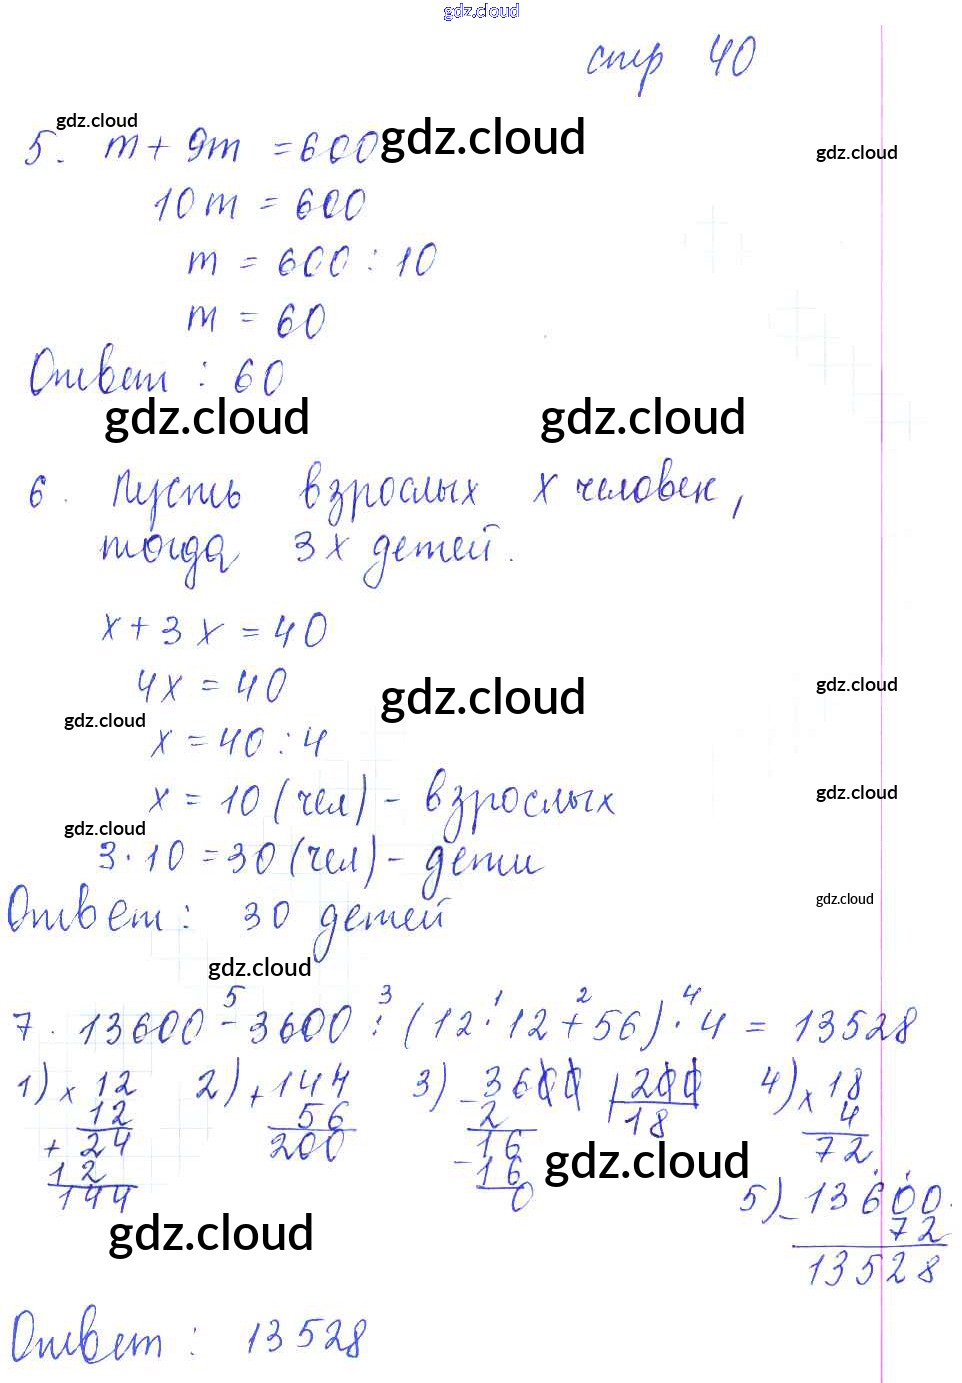 gdz.cloud
стр 40
gdz.cloud
5. m + 9m = 600 gdz.cloud gdz.cloud
10m = 600
m = 600 : 10
m = 60
Ответ : 60
gdz.cloud gdz.cloud
6. Пусть взрослых x человек,
тогда 3x детей.
x + 3x = 40
4x = 40 gdz.cloud gdz.cloud
gdz.cloud
x = 40 : 4
x = 10 (чел) - взрослых gdz.cloud
gdz.cloud
3 · 10 = 30 (чел) - дети
Ответ : 30 детей gdz.cloud
gdz.cloud
5 3 1 2 4
7. 13600 - 3600 : (12 · 12 + 56) · 4 = 13528
1) x 12 2) + 144 3) - 3600 | 200 4) x 18
12 56 2 18 4
+ 24 200 16 72
12 - 16 gdz.cloud
144 0 5) - 13600
gdz.cloud 72
13528
Ответ : 13528